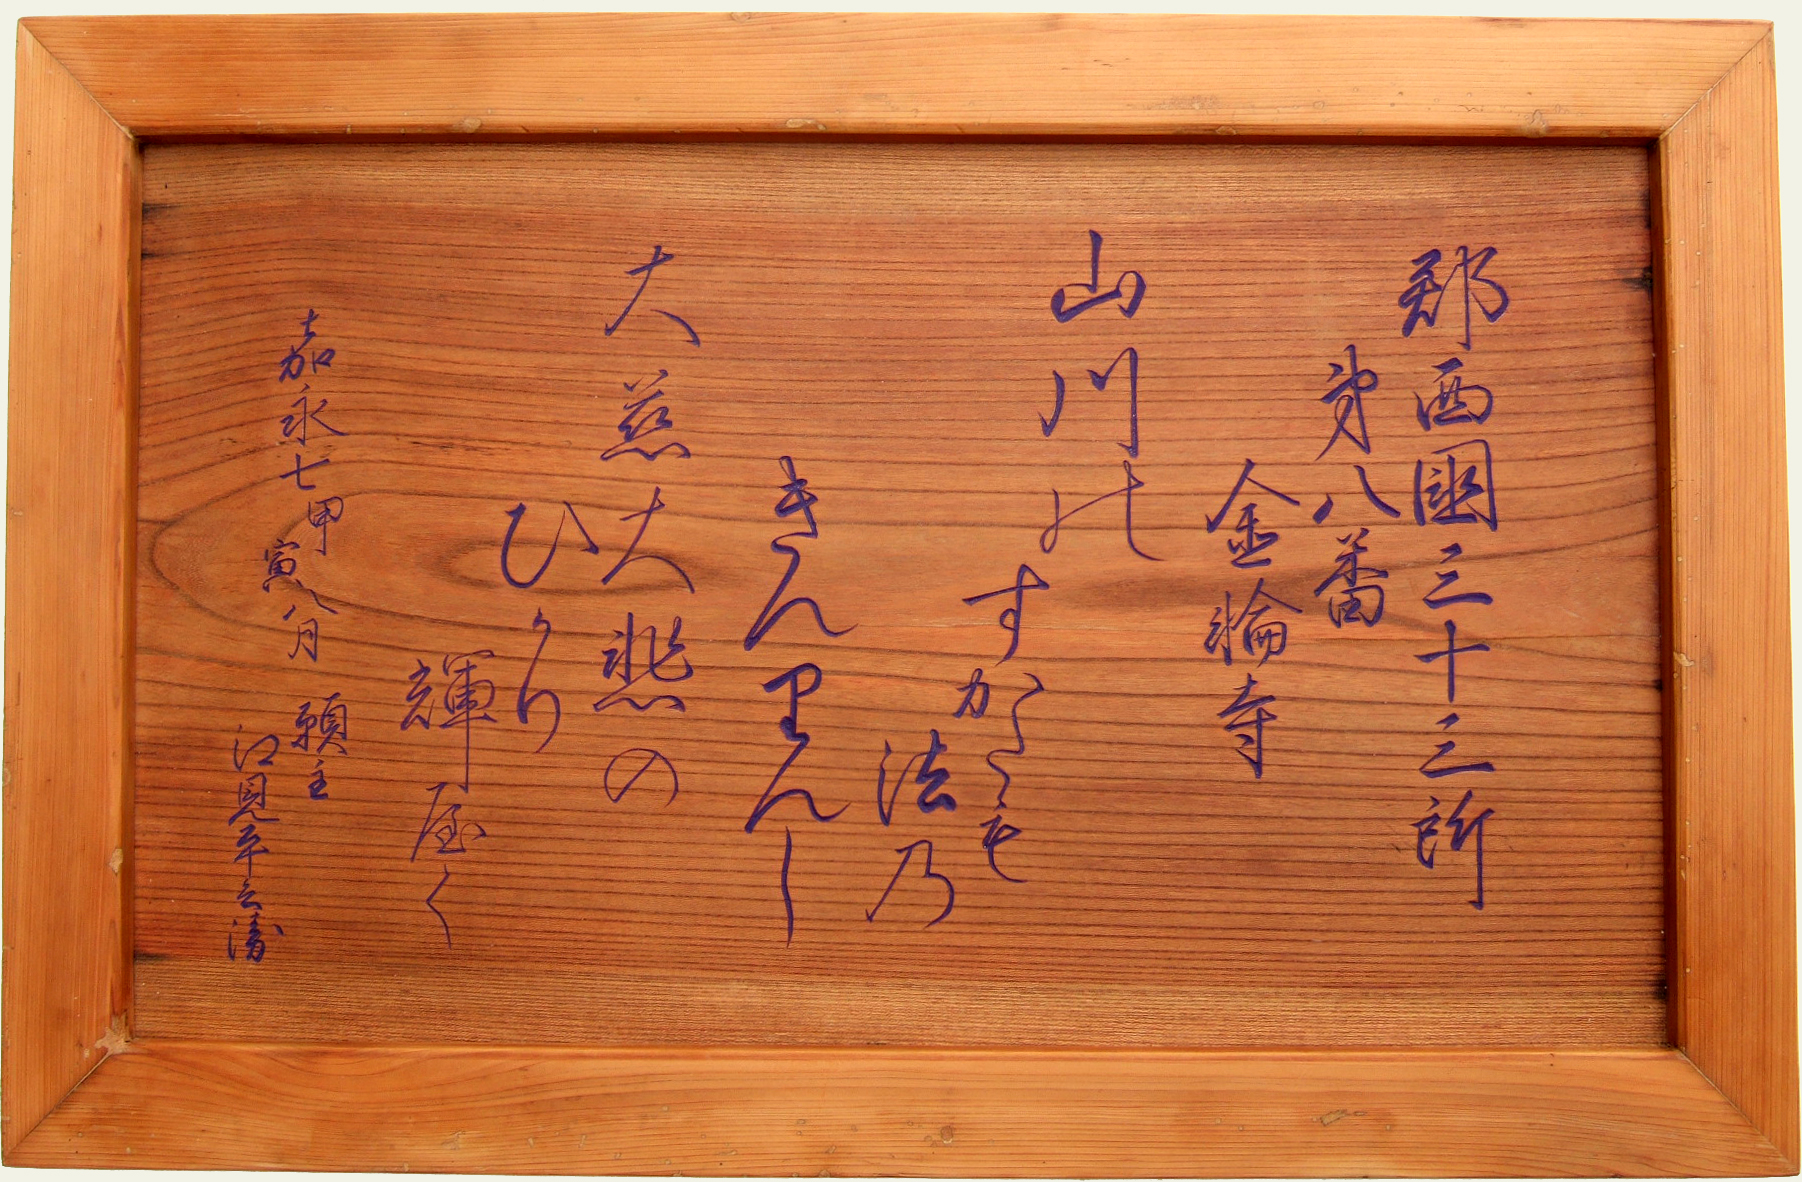 郡西國三十三所
第八番
金輪寺
山川の
すがたも
法乃
きんりんし
大慈大悲の
ひかり
輝屋く
嘉永七甲寅八月 願主
江見平